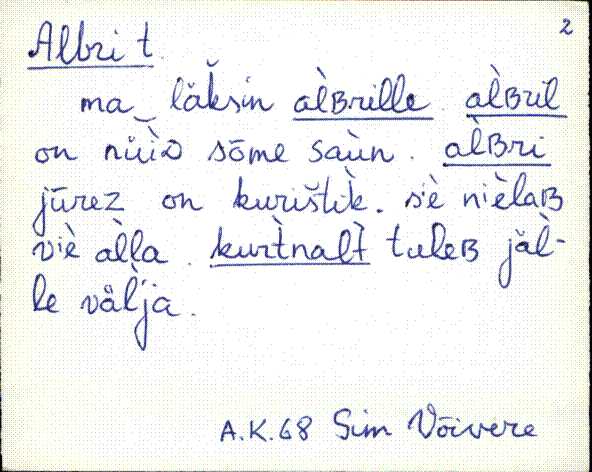 2
Albri t.
ma‿ läk̆sin àlʙrille. àlʙril
on nǜiᴅ sōme saùn. àlʙri
jūrez on kurištìk. s'è nièlaʙ
viè àl̨l̨a. kurtnalt tuleʙ jäl̀-
le väl̀ja.
A.K.68 Sim Võivere